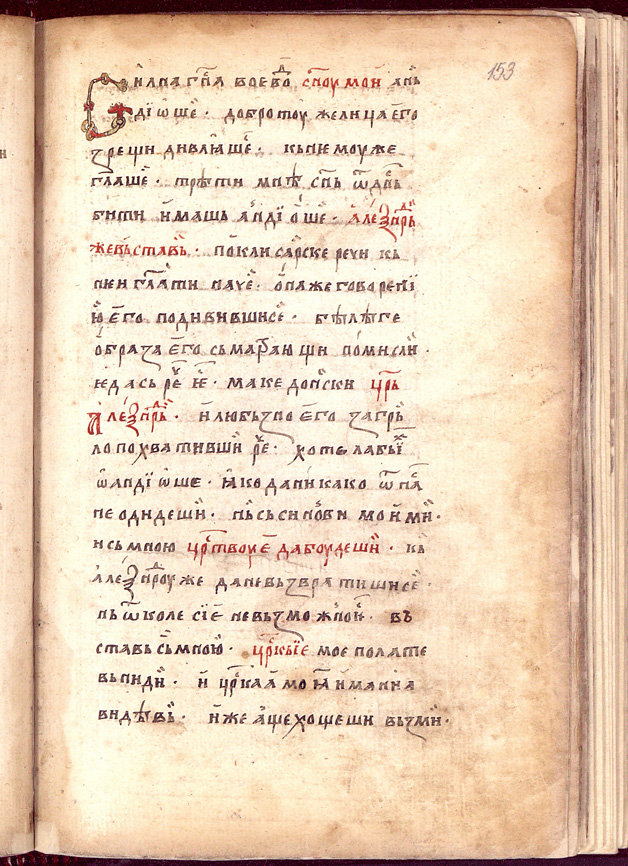 153
силна гн҃а воево́д сн҃оу мои ань
дїѡше · добротоу же лица его
зрещи дивлꙗше · кь немоу же
гл҃аше · трети мнѣ сн҃ь ѿ дн҃ь
бити имашь андїоше · алеѯандрь
же вьставь · поклисарске речи кь
ниеи гл҃ати паче · она же говоренї
ю его подивившисе · бѣлѣге
образа его сьматрающи помисли ·
еда сь рече ѥ · македонски цр҃ь
алеѯандрь · и любьзно его за грь
ло похвативши рече · хотела бы
ѡ андїѡше · ꙗко да никако ѿ на
не одидеши · нь сь синови моими ·
и сь мною цр҃твоуе да боудеши · кь
алеѯандроу же да не вьзвратишисе ·
нь ѿколе сїе невьзможно ѥ · вь
ставь сь мною · цр҃кые мое полате
вьниди · и цр҃каа моꙗ имания
видѣвь · иже аще хощеши вьзми ·